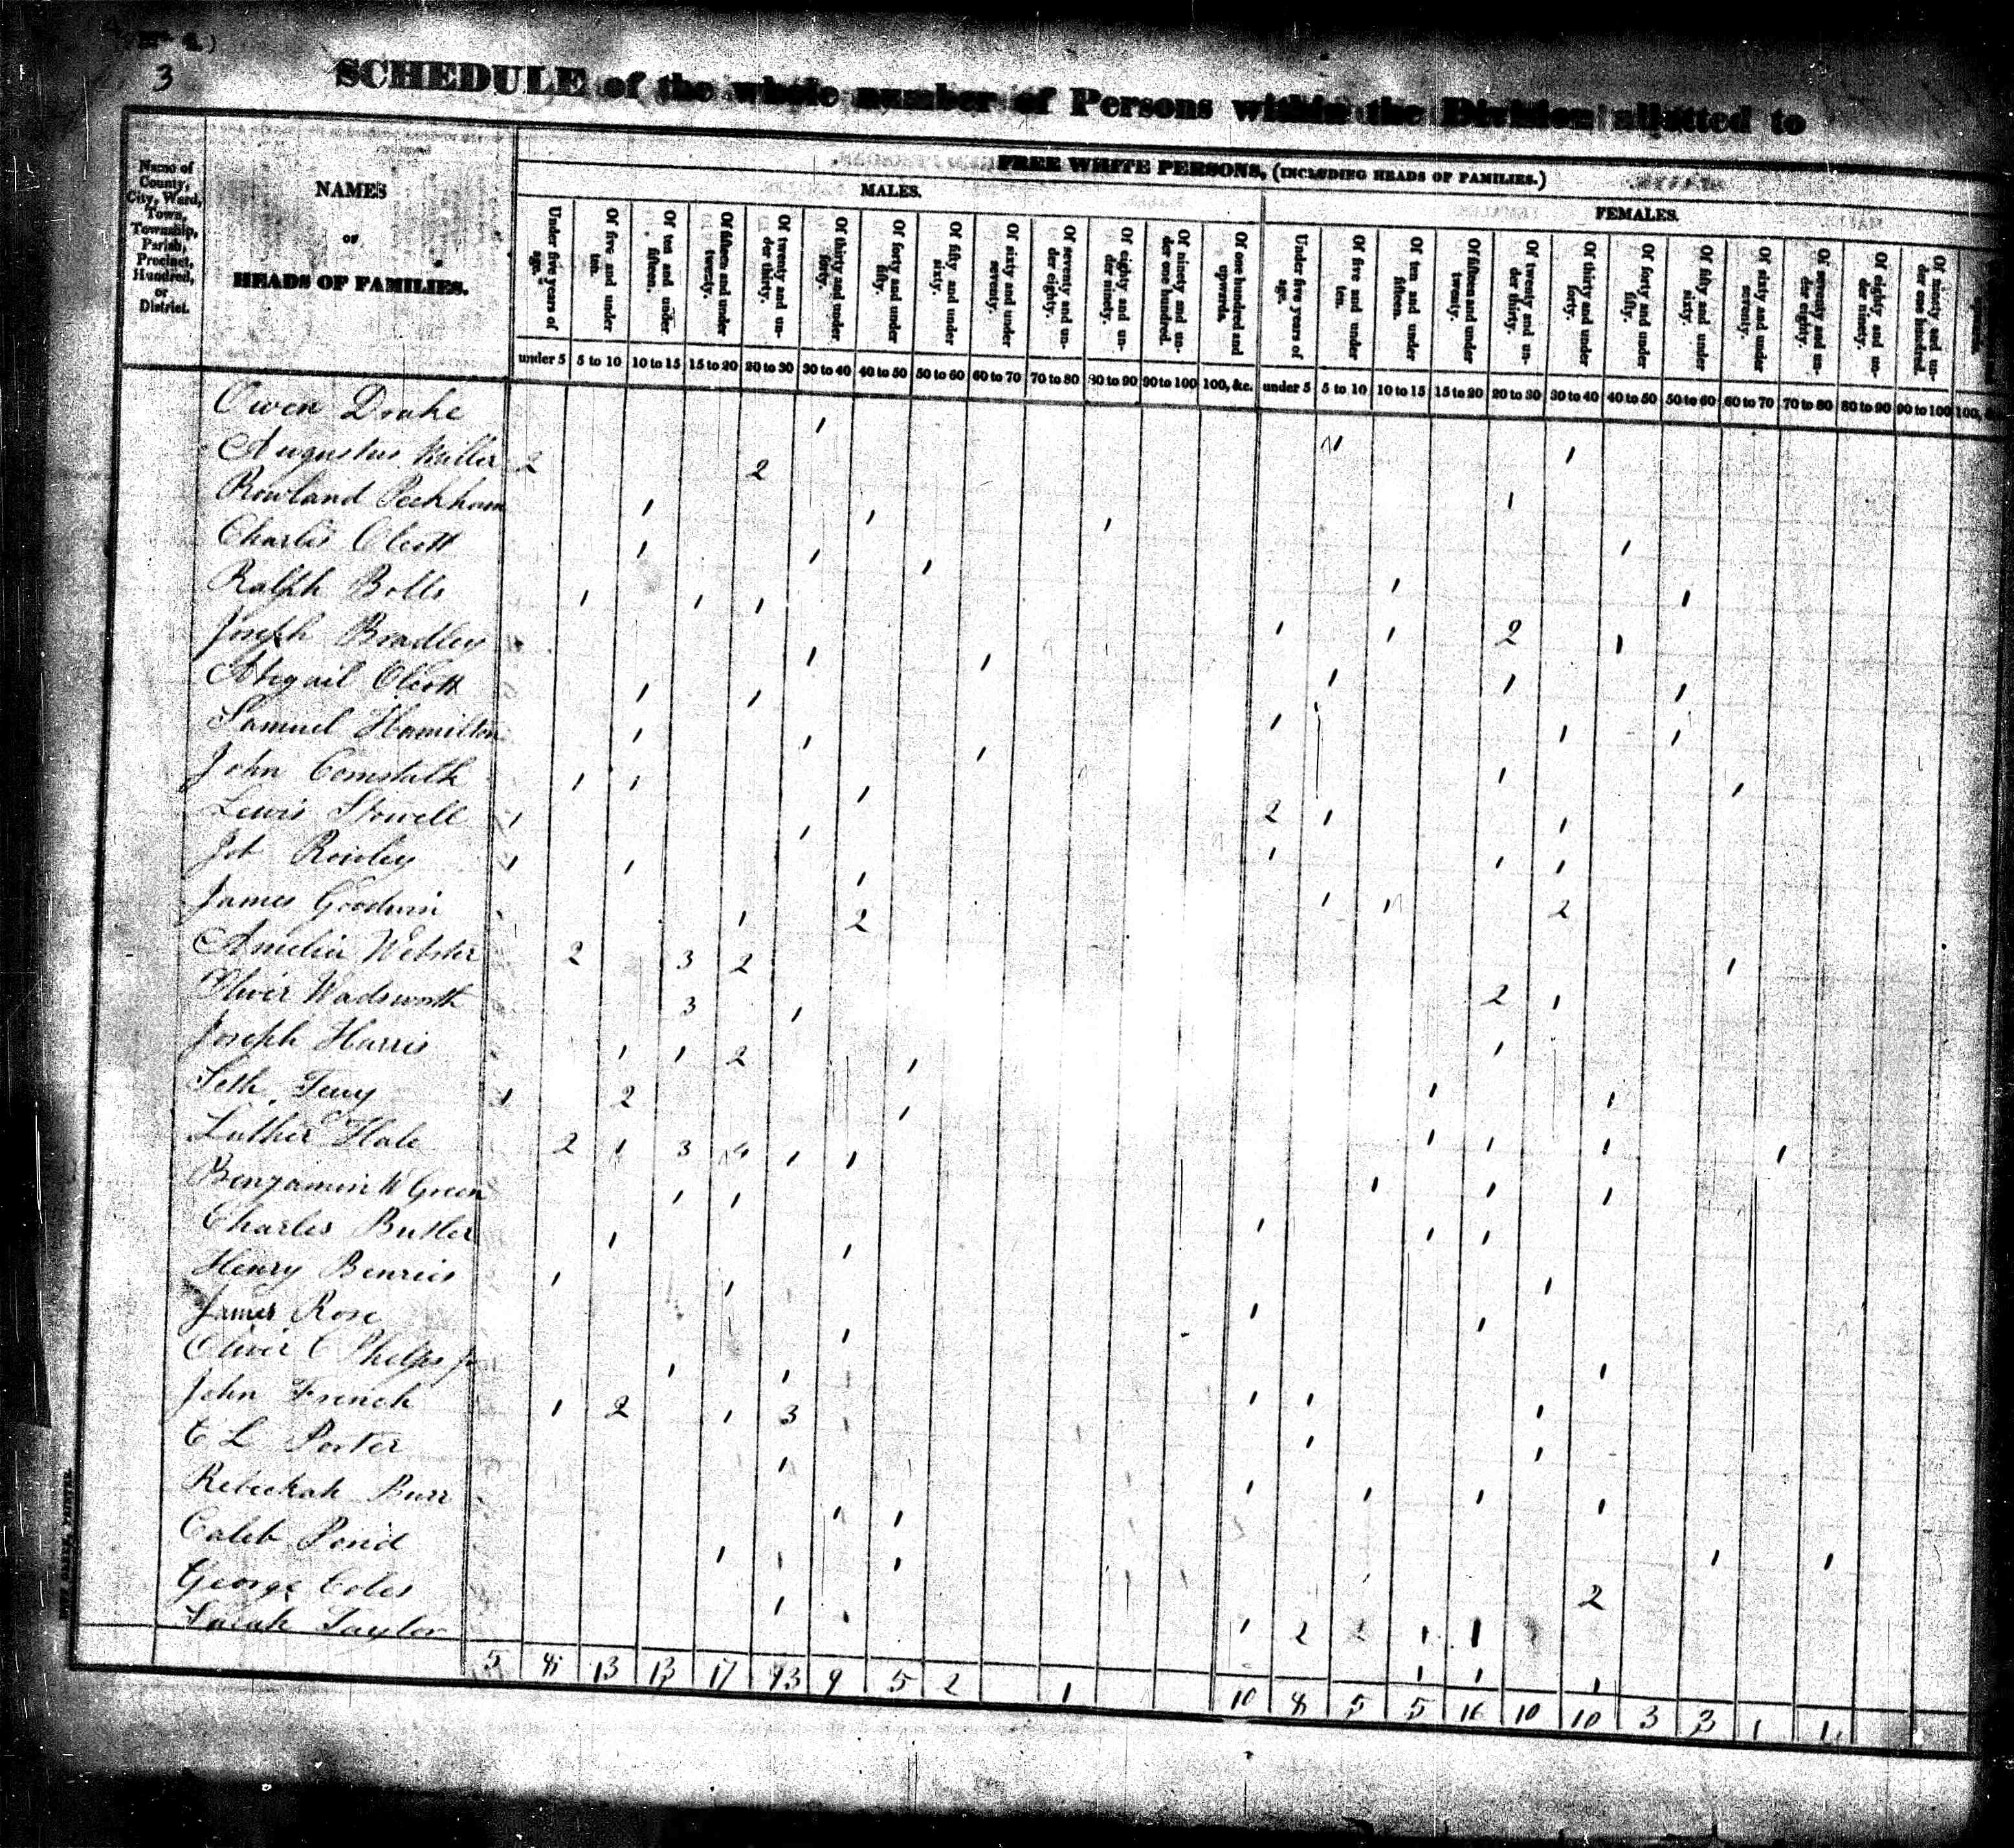 3
SCHEDULE of the whole number of Persons within the Division allotted to
FREE WHITE PERSONS, (INCLUDING HEADS OF FAMILIES.)
MALES.
FEMALES.
Name of County, City, Ward, Town, Township, Parish, Precinct, Hundred, or District.
NAMES
OF
HEADS OF FAMILIES.
Under five years of age.
Of five and under ten.
Of ten and under fifteen.
Of fifteen and under twenty.
Of twenty and under thirty.
Of thirty and under forty.
Of forty and under fifty.
Of fifty and under sixty.
Of sixty and under seventy.
Of seventy and under eighty.
Of eighty and under ninety.
Of ninety and under one hundred.
Of one hundred and upwards.
Under five years of age.
Of five and under ten.
Of ten and under fifteen.
Of fifteen and under twenty.
Of twenty and under thirty.
Of thirty and under forty.
Of forty and under fifty.
Of fifty and under sixty.
Of sixty and under seventy.
Of seventy and under eighty.
Of eighty and under ninety.
Of ninety and under one hundred.
under 5 5 to 10 10 to 15 15 to 20 20 to 30 30 to 40 40 to 50 50 to 60 60 to 70 70 to 80 80 to 90 90 to 100 100, &c. under 5 5 to 10 10 to 15 15 to 20 20 to 30 30 to 40 40 to 50 50 to 60 60 to 70 70 to 80 80 to 90 90 to 100 100,
Owen Drake 1 1 1
Augustus Miller 2 2 1
Rowland Peckham 1 1 1 1
Charles Olcott 1 1 1 1 1
Ralph Bolls 1 1 1 1 1 2 1
Joseph Bradley 1 1 1 1 1
Abigail Olcott 1 1 1 1 1
Samuel Hamilton 1 1 1 1 1
John Comstock 1 1 1 2 1 1
Lewis Stowell 1 1 1 1 1
Job Rowley 1 1 1 1 1 2
James Goodwin 1 2
Amelia Webster 2 3 2 1
Oliver Wadsworth 3 1 2 1
Joseph Harris 1 1 2 1 1
Seth Terry 1 2 1 1 1
Luther Hale 2 1 3 4 1 1 1 1 1 1
Benjamin W Green 1 1 1 1 1
Charles Butler 1 1 1 1 1
Henry Benries 1 1 1
James Rose 1 1 1
Oliver C Phelps jr 1 1 1
John French 1 2 1 3 1 1 1
C L Porter 1 1 1
Rebeckah Burr 1 1 1 1 1 1
Caleb Pond 1 1 1 1 1
George Coles 1 1 2
Sarah Taylor 1 2 1 1
5 8 13 13 17 13 9 5 2 1 10 8 5 5 16 10 10 3 3 1 1